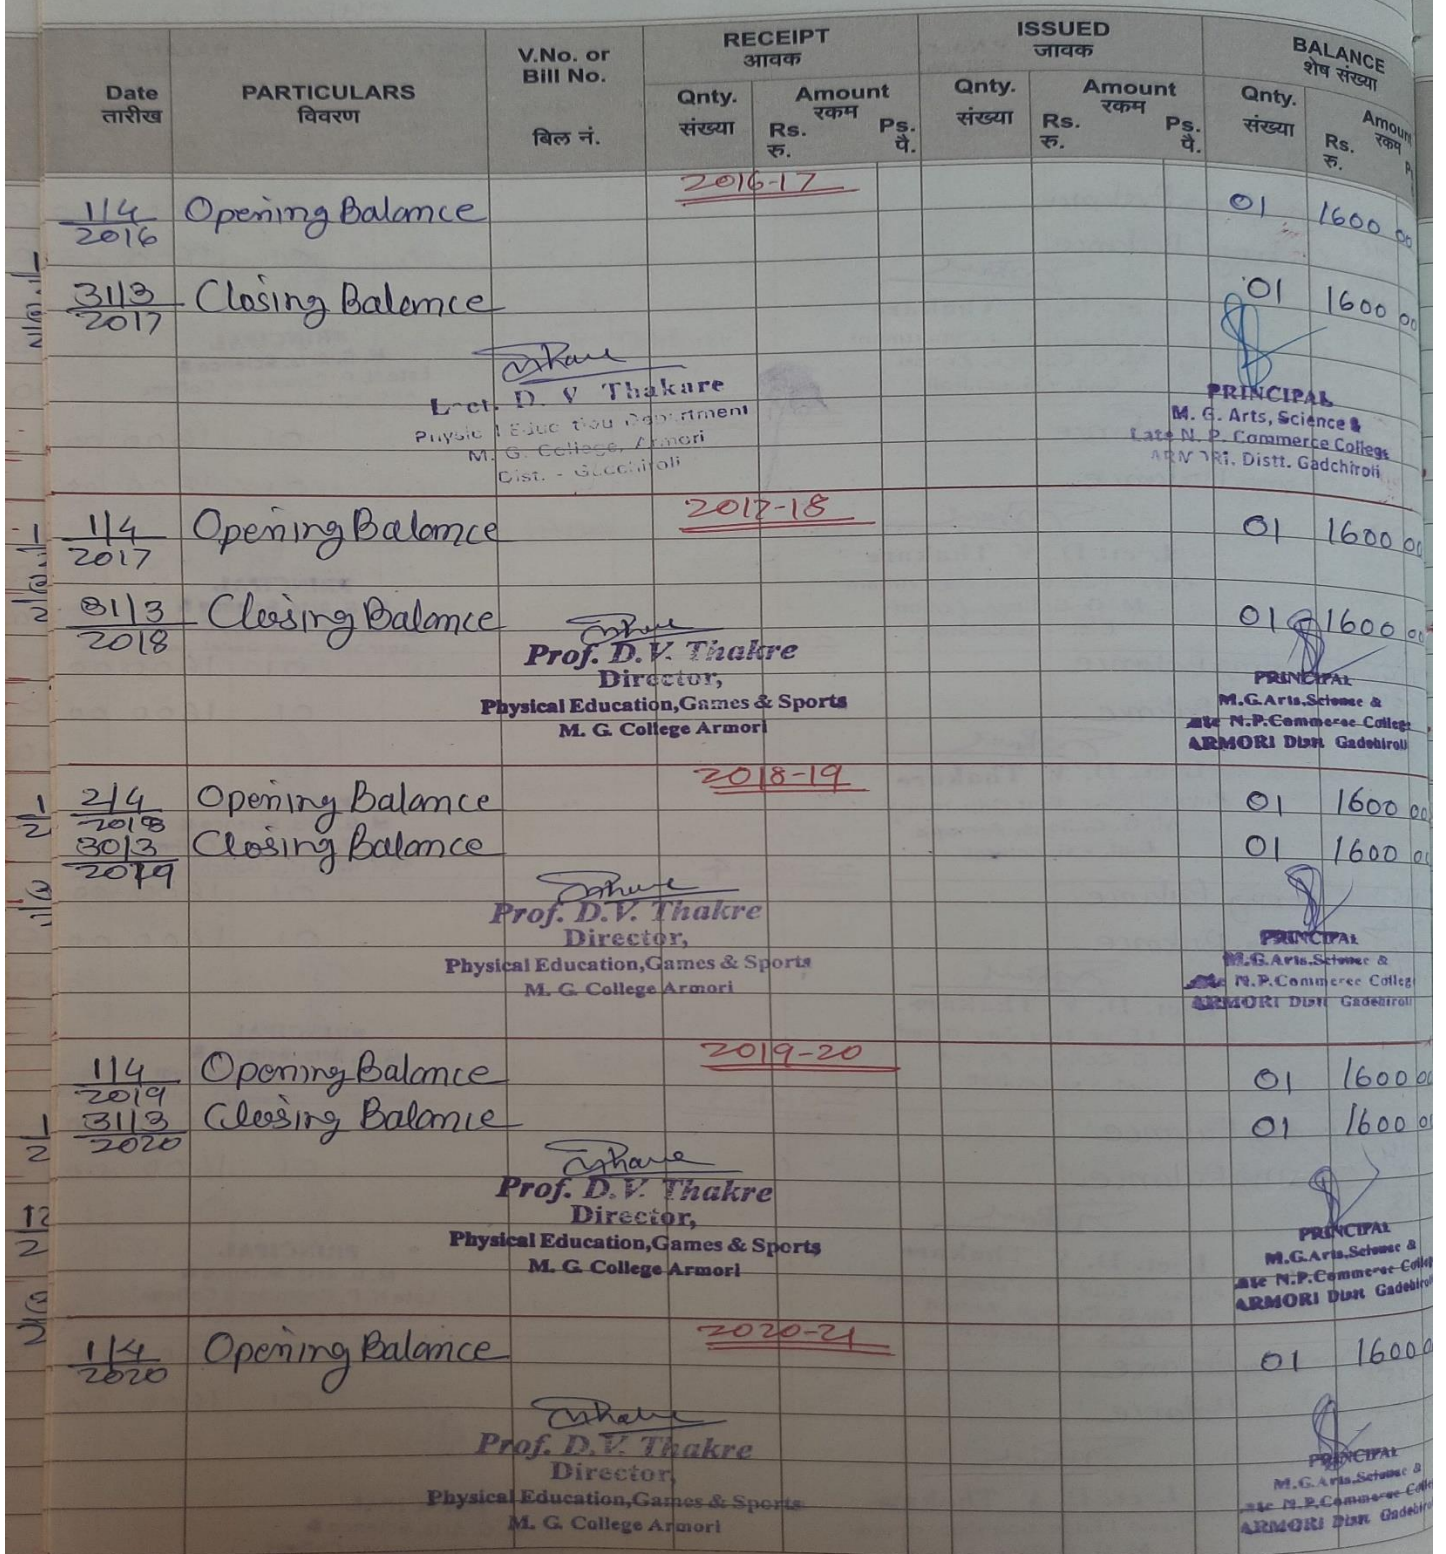 Date
तारीख
PARTICULARS
विवरण
V.No. or
Bill No.
बिल नं.
RECEIPT
आवक
Qnty.
संख्या
Amount
रकम
Rs.
रु.
Ps.
पै.
ISSUED
जावक
Qnty.
संख्या
Amount
रकम
Rs.
रु.
Ps.
पै.
BALANCE
शेष संख्या
Qnty.
संख्या
Amoun
रकम
Rs.
रु.
2016-17
1/4 2016 Opening Balance 01 1600 00
31/3 2017 Closing Balance 01 1600 00
D. V Thakare
M. G. College, Armori
PRINCIPAL
M. G. Arts, Science &
Late N. P. Commerce College
Distt. Gadchiroli
2017-18
1/4 2017 Opening Balance 01 1600 00
31/3 2018 Closing Balance 01 1600 00
Prof. D.V. Thakre
Director,
Physical Education,Games & Sports
M. G. College Armori
PRINCIPAL
M.G.Arts,Science &
N.P.Commerce College
ARMORI Distt Gadchiroli
2018-19
2/4 2018 Opening Balance 01 1600 00
30/3 2019 Closing Balance 01 1600 00
Prof. D.V. Thakre
Director,
Physical Education,Games & Sports
M. G. College Armori
PRINCIPAL
M.G.Arts,Science &
N.P.Commerce Colleg
ARMORI Distt Gadchiroli
2019-20
1/4 2019 Opening Balance 01 1600 00
31/3 2020 Closing Balance 01 1600 00
Prof. D.V. Thakre
Director,
Physical Education,Games & Sports
M. G. College Armori
PRINCIPAL
M.G.Arts,Science &
ate N.P.Commerce Colle
ARMORI Distt Gadchiro
2020-21
1/4 2020 Opening Balance 01 1600 0
Prof. D.V. Thakre
Director,
Physical Education,Games & Sports
M. G. College Armori
PRINCIPAL
M.G.Arts,Science &
ate N.P.Commerce Colle
ARMORI Distt Gadchiro